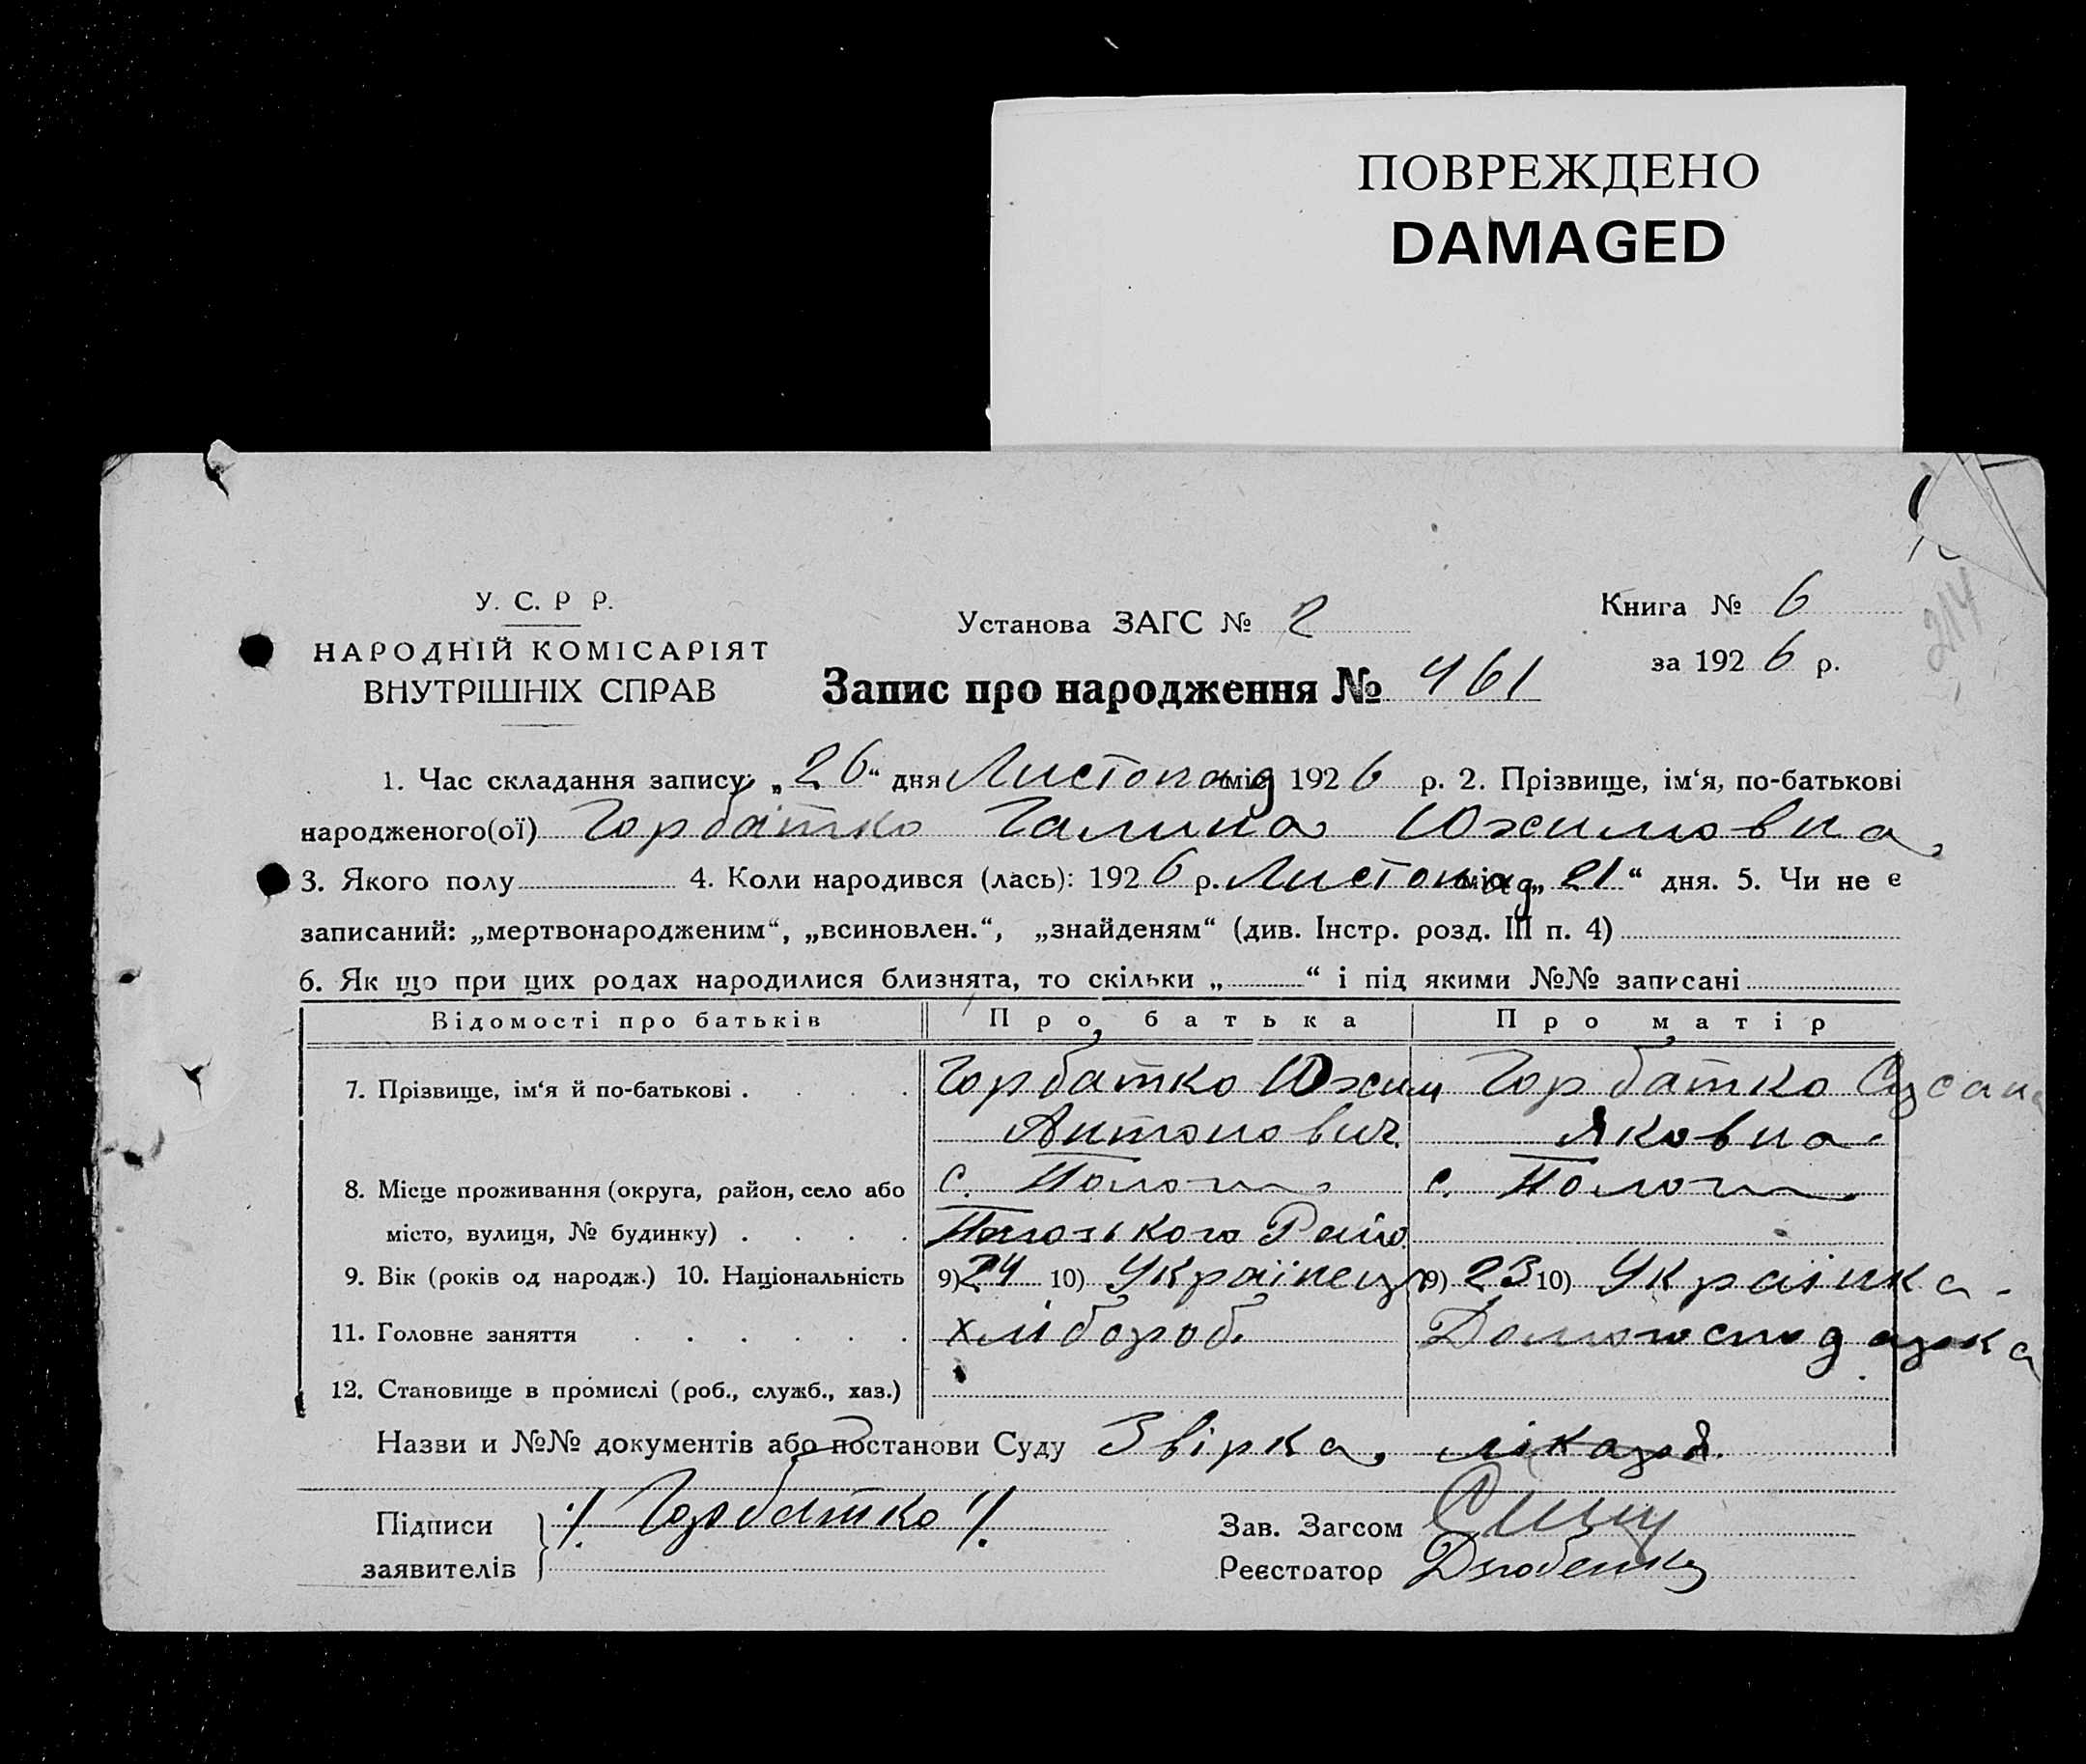 ПОВРЕЖДЕНО
DAMAGED
214
У. С. Р Р.
НАРОДНІЙ КОМІСАРІЯТ
ВНУТРІШНІХ СПРАВ
Установа ЗАГС № 2
Запис про народження № 461
Книга № 6
за 1926 р.
1. Час складання запису: „26“ дня Листопад міс 1926 р. 2. Прізвище, ім‘я, по-батькові
народженого(ої) Горбатко Галина Юхимовна
3. Якого полу 4. Коли народився (лась): 1926 р. Листопад міс „21“ дня. 5. Чи не є
записаний: „мертвонародженим“, „всиновлен.“, „знайденям“ (див. Інстр. розд. III п. 4)
6. Як що при цих родах народилися близнята, то скільки „ “ і під якими №№ записані
Відомості про батьків Про батька Про матір
7. Прізвище, ім‘я й по-батькові . . . . Горбатко Юхим Горбатко Сусана
Антонович Яковна
8. Місце проживання (округа, район, село або с. Пологи с. Пологи
місто, вулиця, № будинку) . . . . Пологського Райо.
9. Вік (років од народж.) 10. Національність 9) 24 10) Українець 9) 23 10) Українка
11. Головне заняття . . . . . . хлібороб.
12. Становище в промислі (роб., служб., хаз.)
Назви и №№ документів або постанови Суду Звірка лікаря.
Підписи
заявителів
Горбатко
Зав. Загсом
Реєстратор